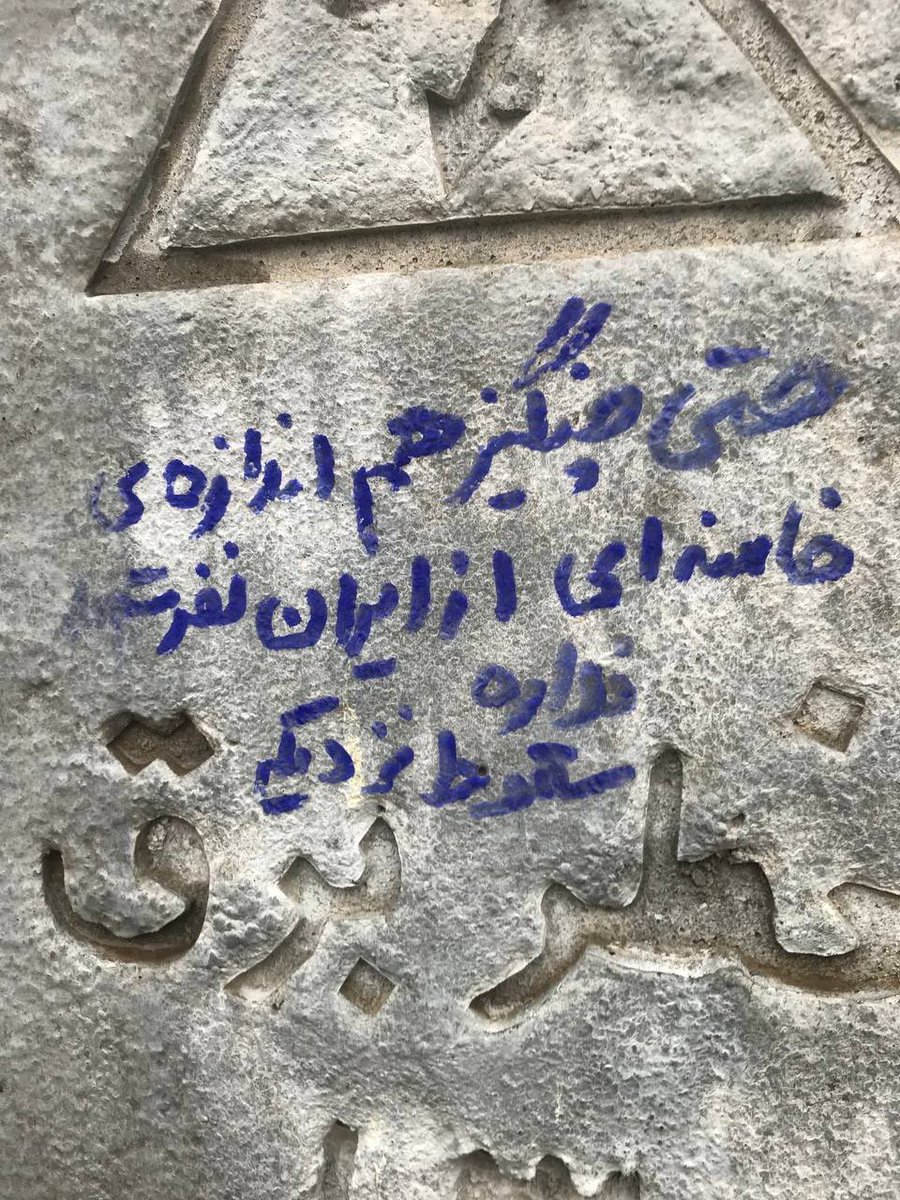 حتی چنگیز هم اندازه‌ی
خامنه‌ای از ایران نفرت
نداره
سقوط نزدیکه
خطر برق